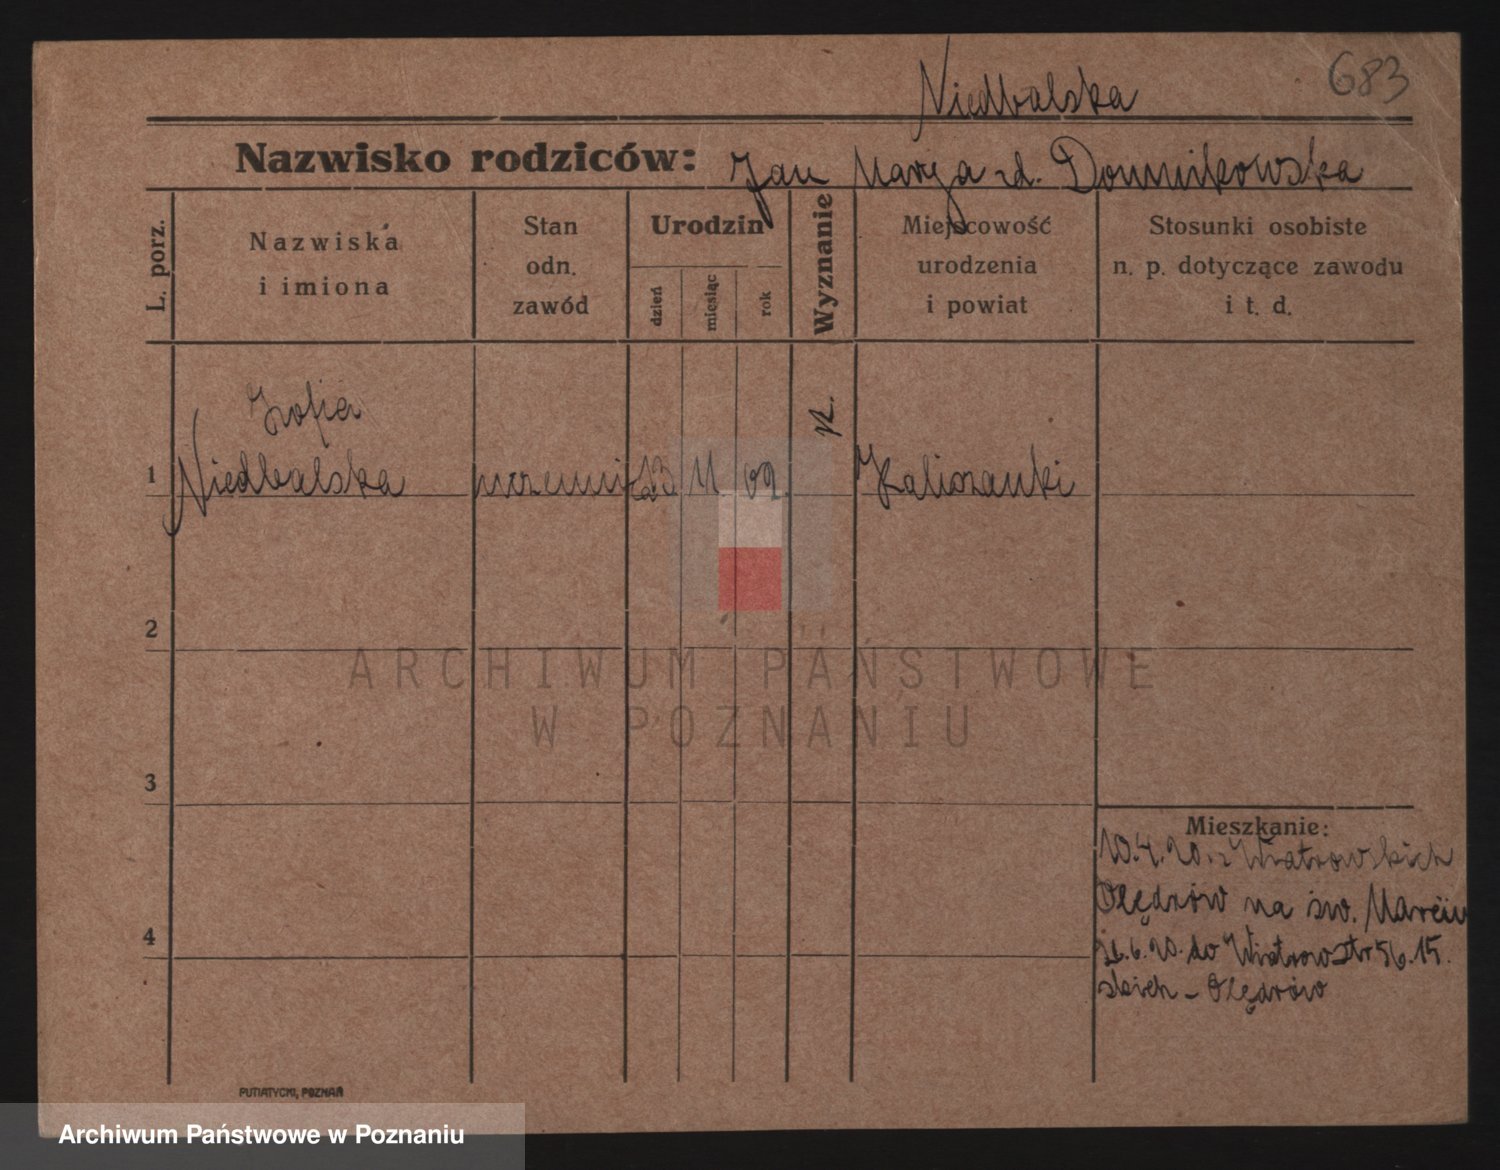 683
Niedbalska
Nazwisko rodziców: Jan Marja zd. Dominikowska
L. porz.
Nazwiska
i imiona
Stan
odn.
zawód
Urodzin
dzień
miesiąc
rok
Wyznanie
Miejscowość
urodzenia
i powiat
Stosunki osobiste
n. p. dotyczące zawodu
i t. d.
Zofia
1 Niedbalska 13 11 09. Kaliszanki
2
3
4
Mieszkanie:
10.4.20. z Wiatrowskich
Olędrów na św. Marcin
6.20. do Wiatrow str 56. 15.
skich - Olędrów
ARCHIWUM PAŃSTWOWE
W POZNANIU
PUTIATYCKI, POZNAŃ
Archiwum Państwowe w Poznaniu